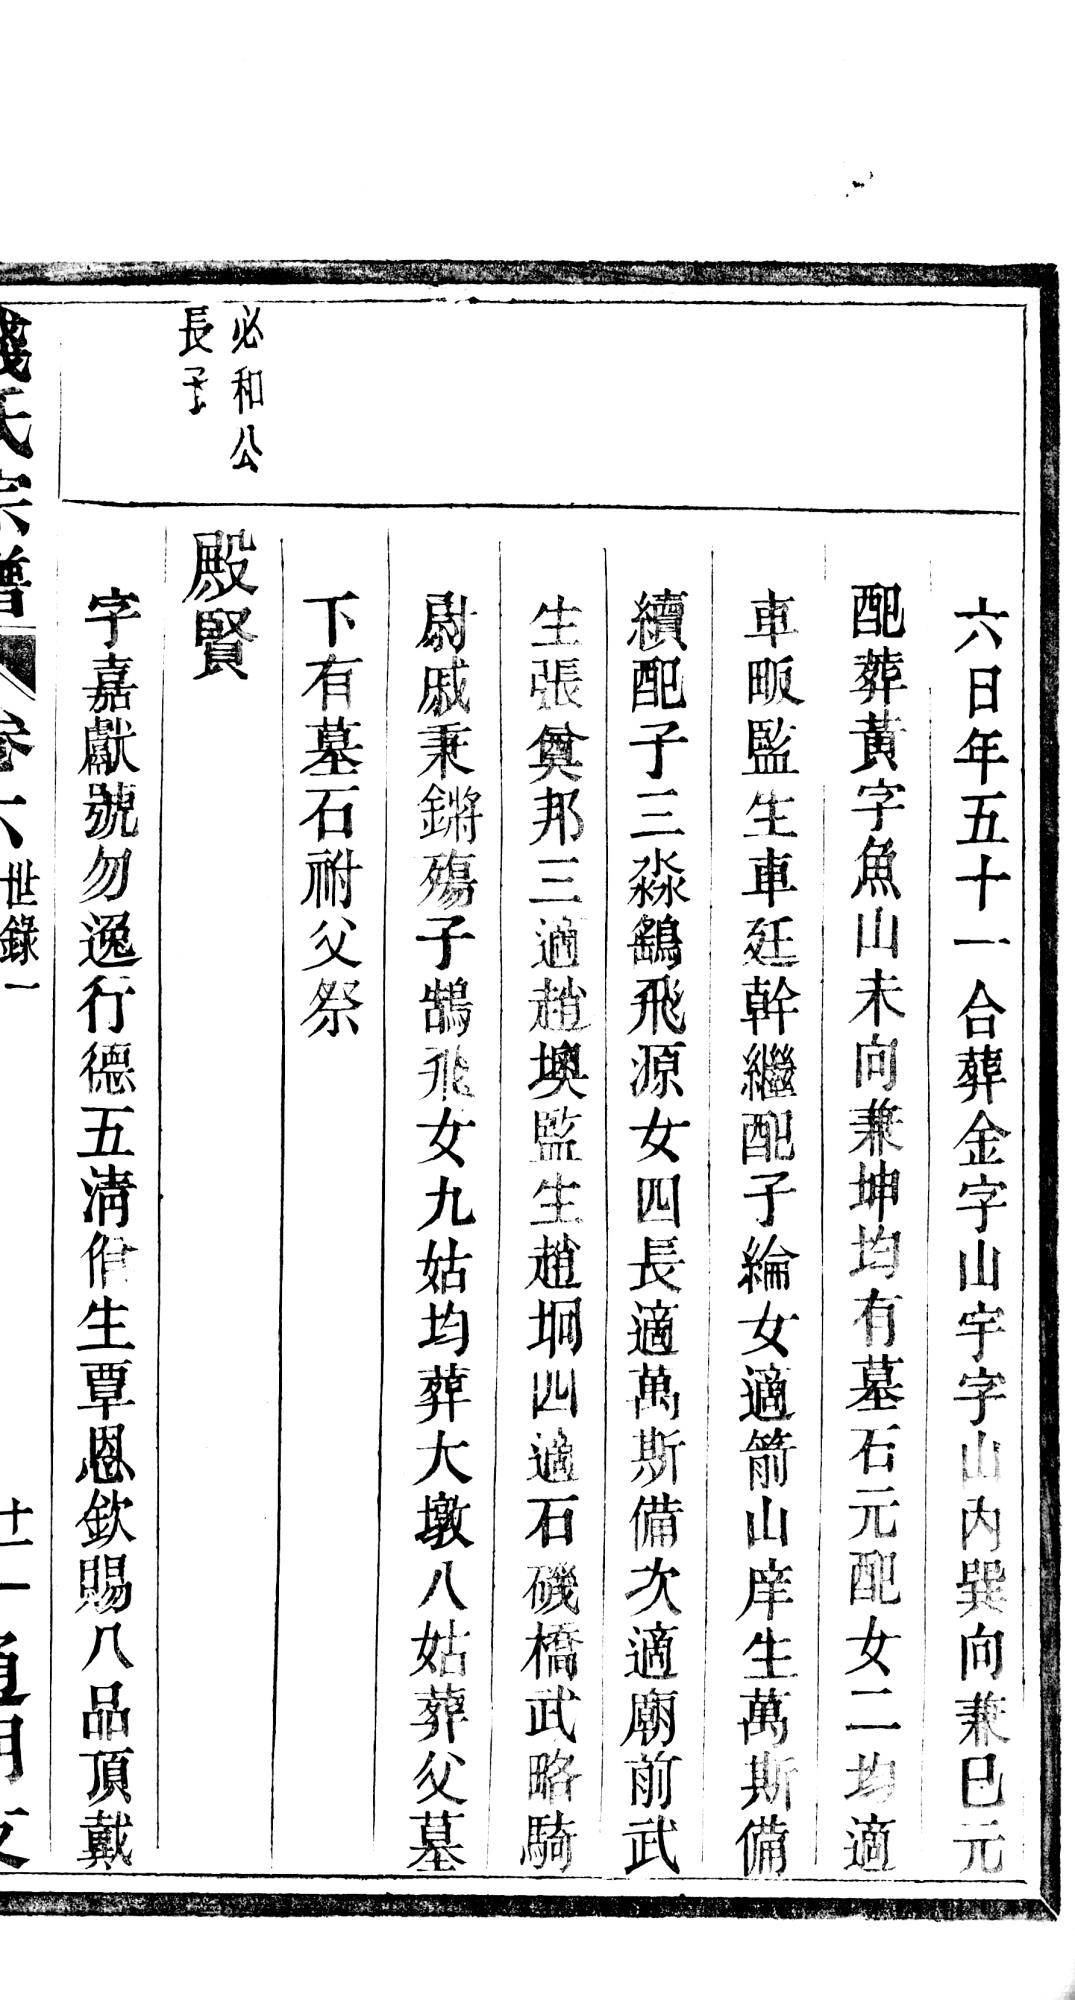 六日年五十一合葬金字山宇字山内巽向兼巳元
配葬黃字魚山未向兼坤均有墓石元配女二均適
車畈監生車廷幹繼配子綸女適箭山庠生萬斯備
續配子三淼鶴飛源女四長適萬斯備次適廟前武
生張奠邦三適趙墺監生趙坰四適石磯橋武略騎
尉戚秉鏘殤子鵠飛女九姑均葬大墩八姑葬父墓
下有墓石祔父祭
必和公
長子
殿賢
字嘉獻號勿逸行德五清俏生覃恩欽賜八品頂戴
錢氏宗譜 卷六 世錄一 廿一 通明支